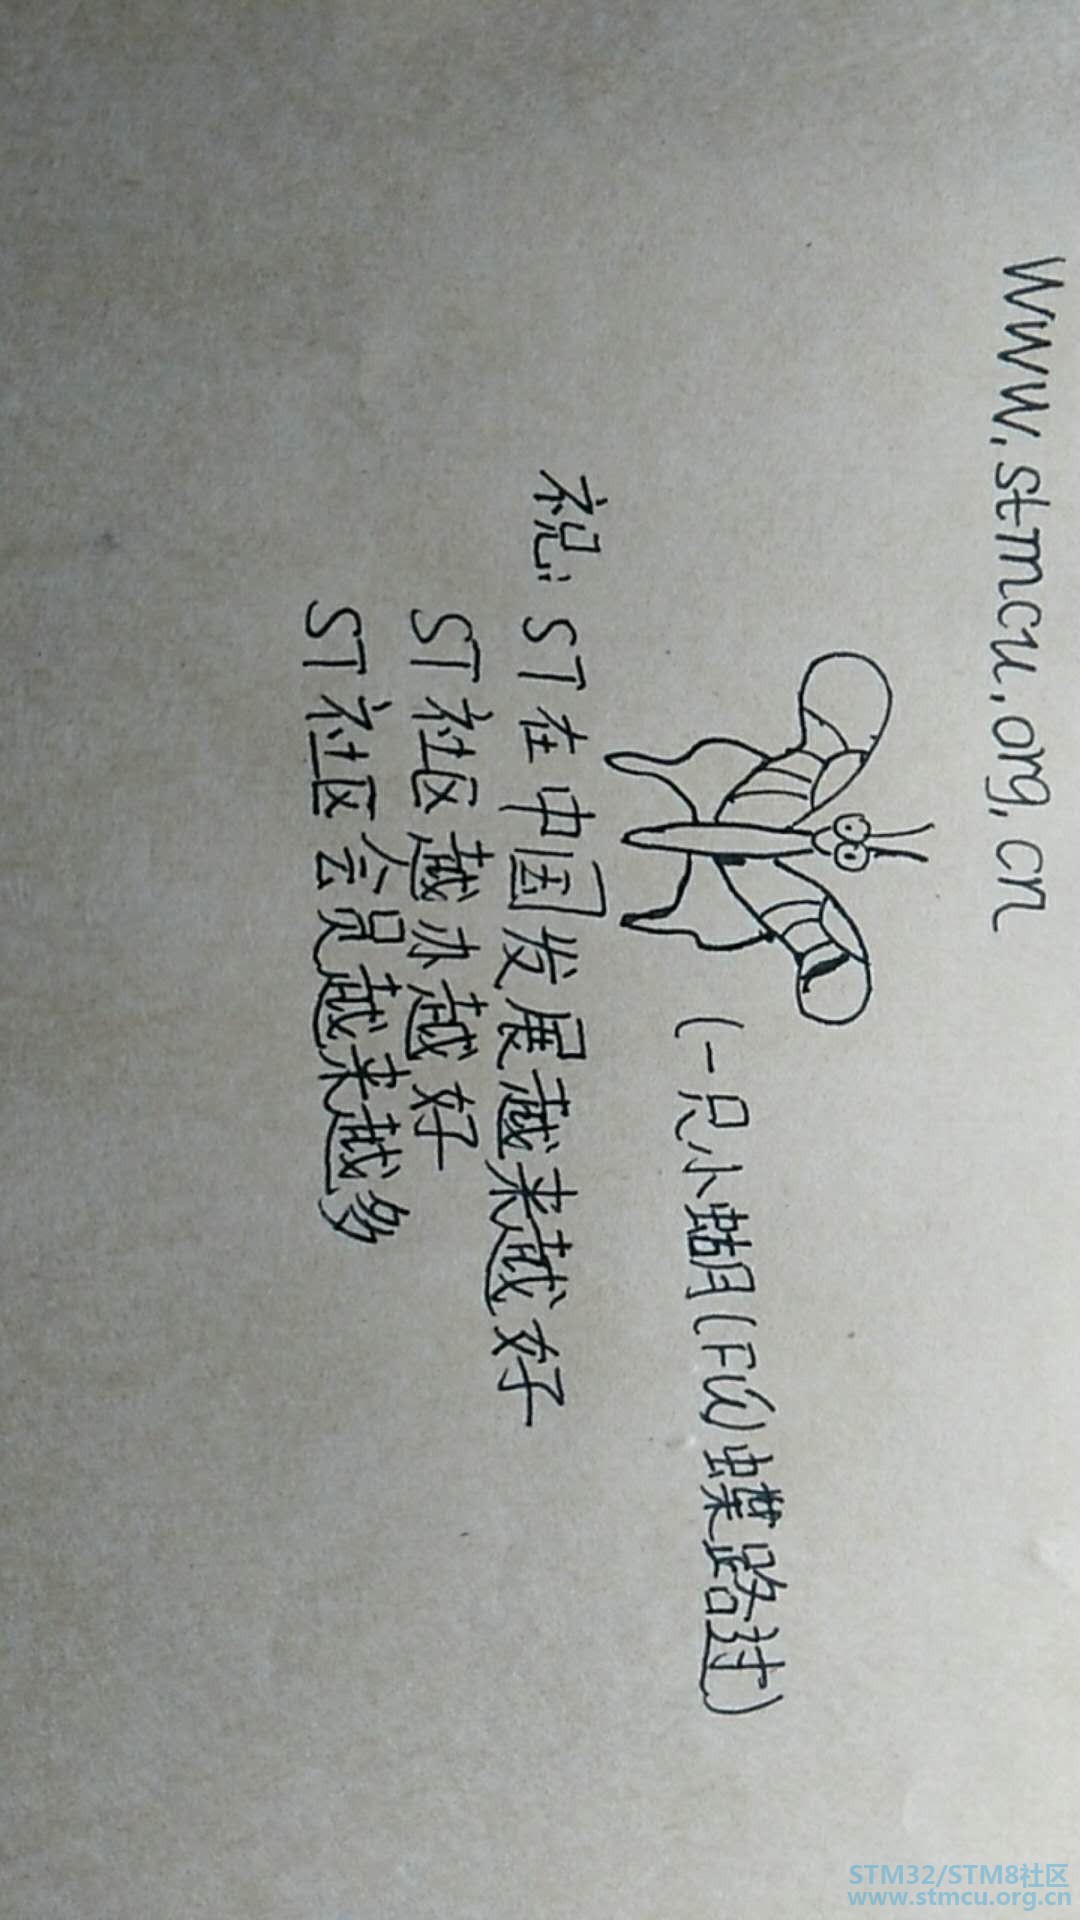 www.stmcu.org.cn
(一只小蝴(FU)蝶路过)
祝: ST在中国发展越来越好
ST社区越办越好
ST社区会员越来越多
STM32/STM8社区
www.stmcu.org.cn